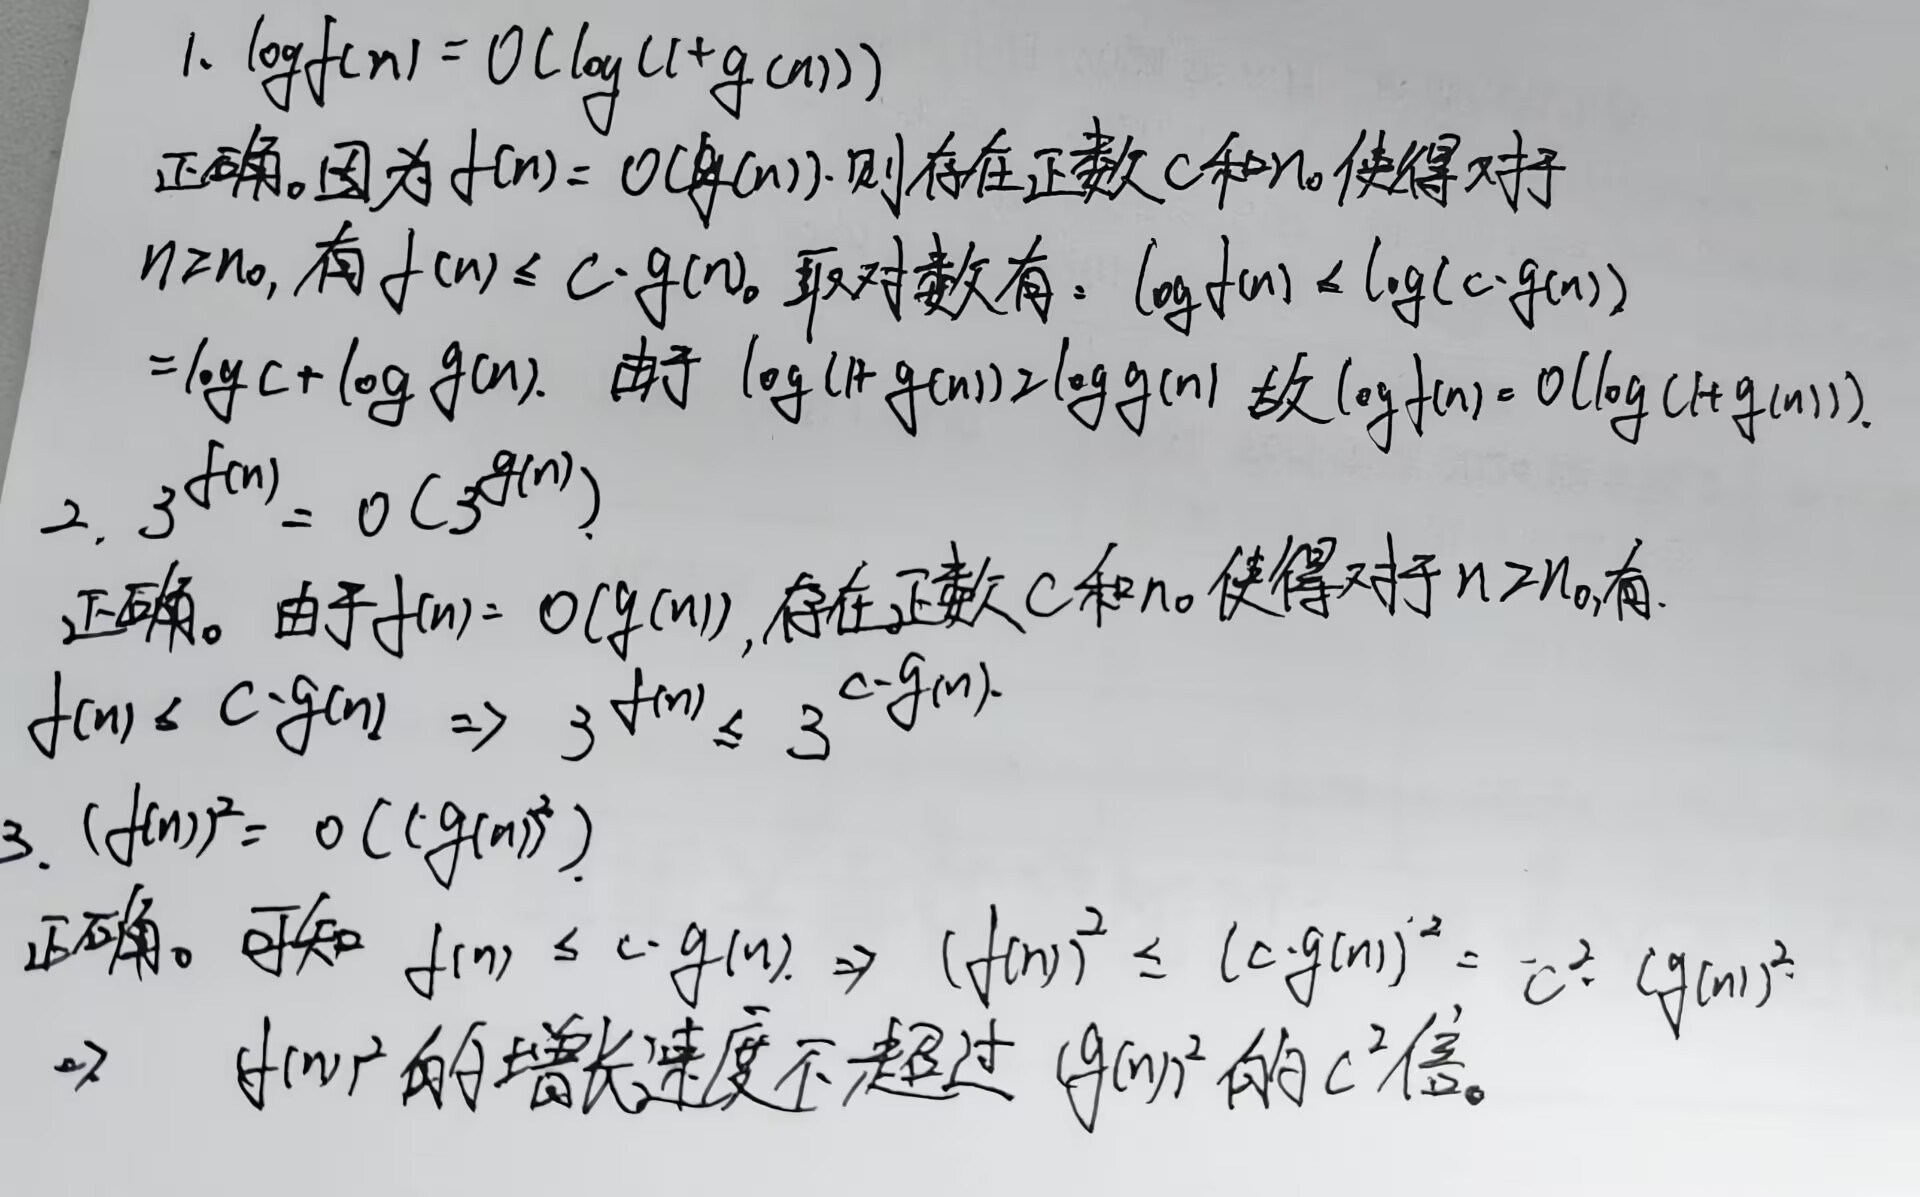 1. log f(n) = O(log(1+g(n)))
正确。因为 f(n) = O(g(n)). 则存在正数 c 和 n₀ 使得对于
n≥n₀, 有 f(n) ≤ c·g(n)。取对数有: log f(n) ≤ log(c·g(n))
=log c + log g(n). 由于 log(1+g(n))≥log g(n) 故 log f(n) = O(log(1+g(n))).
2. 3^f(n) = O(3^g(n)).
正确。由于 f(n) = O(g(n)), 存在正数 C 和 n₀ 使得对于 n≥n₀, 有.
f(n) ≤ C·g(n) => 3^f(n) ≤ 3^c·g(n).
3. (f(n))² = O((g(n))²).
正确。可知 f(n) ≤ c·g(n). => (f(n))² ≤ (c·g(n))² = c²·(g(n))².
=> f(n)² 的增长速度不超过 (g(n))² 的 c² 倍。